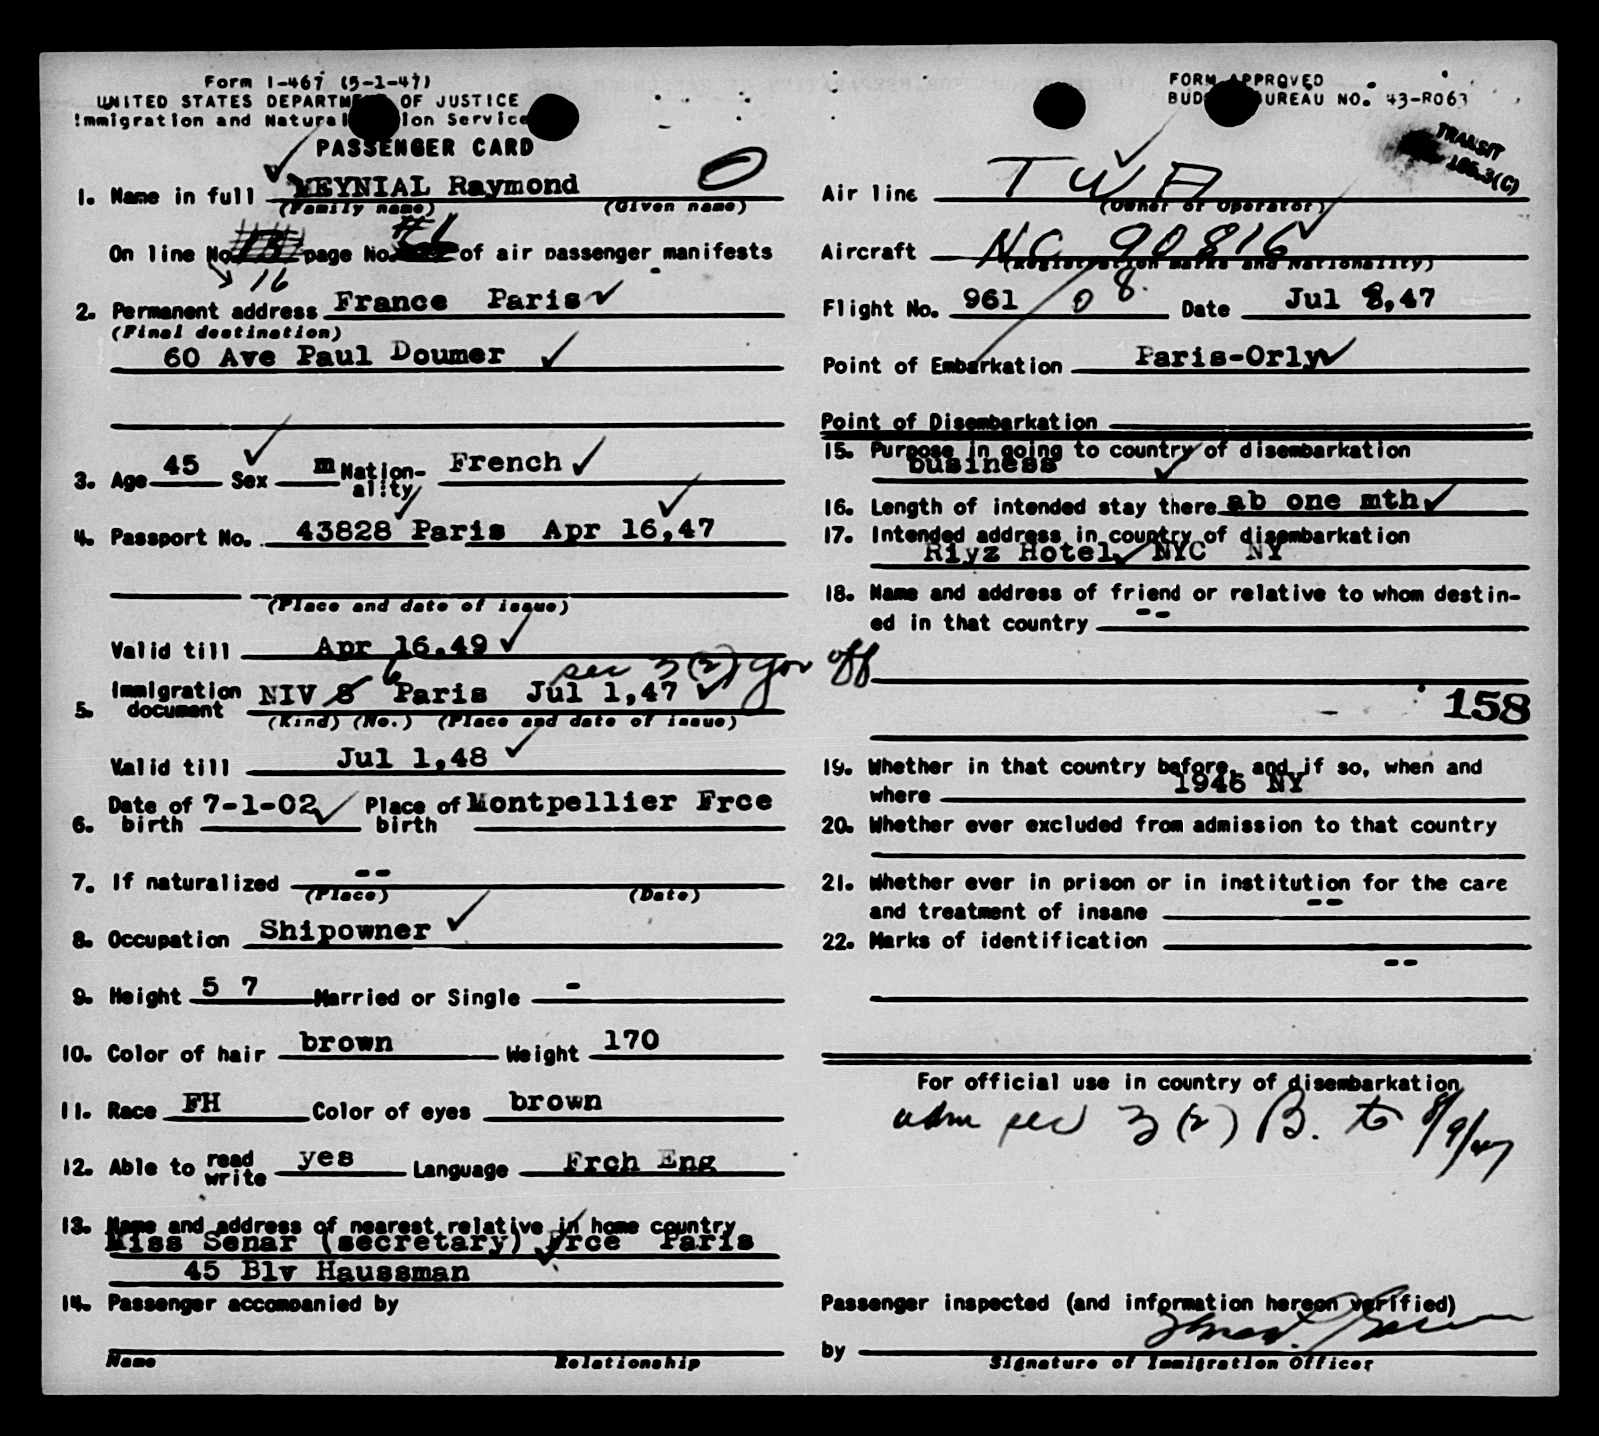 Form I-467 (5-1-47)
UNITED STATES DEPARTMENT OF JUSTICE
Immigration and Naturalization Service
PASSENGER CARD
FORM APPROVED
BUDGET BUREAU NO. 43-R063
TRANSIT
1. Name in full MEYNIAL Raymond O
(Family name) (Given name)
On line No. 13 page No. #1 of air passenger manifests
16
2. Permanent address France Paris
(Final destination)
60 Ave Paul Doumer
3. Age 45 Sex m Nation-ality French
4. Passport No. 43828 Paris Apr 16,47
(Place and date of issue)
Valid till Apr 16,49
sec 3(2) gov off
5. Immigration document NIV 8 6 Paris Jul 1,47
(Kind) (No.) (Place and date of issue)
Valid till Jul 1,48
6. Date of birth 7-1-02 Place of birth Montpellier Frce
7. If naturalized --
(Place) (Date)
8. Occupation Shipowner
9. Height 5 7 Married or Single -
10. Color of hair brown Weight 170
11. Race FH Color of eyes brown
12. Able to read write yes Language Frch Eng
13. Name and address of nearest relative in home country
Miss Senar (secretary) Frce Paris
45 Blv Haussman
14. Passenger accompanied by
Name Relationship
Air line TWA
(Owner or Operator)
Aircraft NC 90816
(Registration marks and Nationality)
Flight No. 961 08 Date Jul 8,47
Point of Embarkation Paris-Orly
Point of Disembarkation
15. Purpose in going to country of disembarkation
business
16. Length of intended stay there ab one mth
17. Intended address in country of disembarkation
Riyz Hotel NYC NY
18. Name and address of friend or relative to whom destin-
ed in that country --
158
19. Whether in that country before, and if so, when and
where 1946 NY
20. Whether ever excluded from admission to that country
21. Whether ever in prison or in institution for the care
and treatment of insane --
22. Marks of identification
--
For official use in country of disembarkation
adm sec 3(2) B. to 8/9/47
Passenger inspected (and information hereon verified)
by
Signature of Immigration Officer